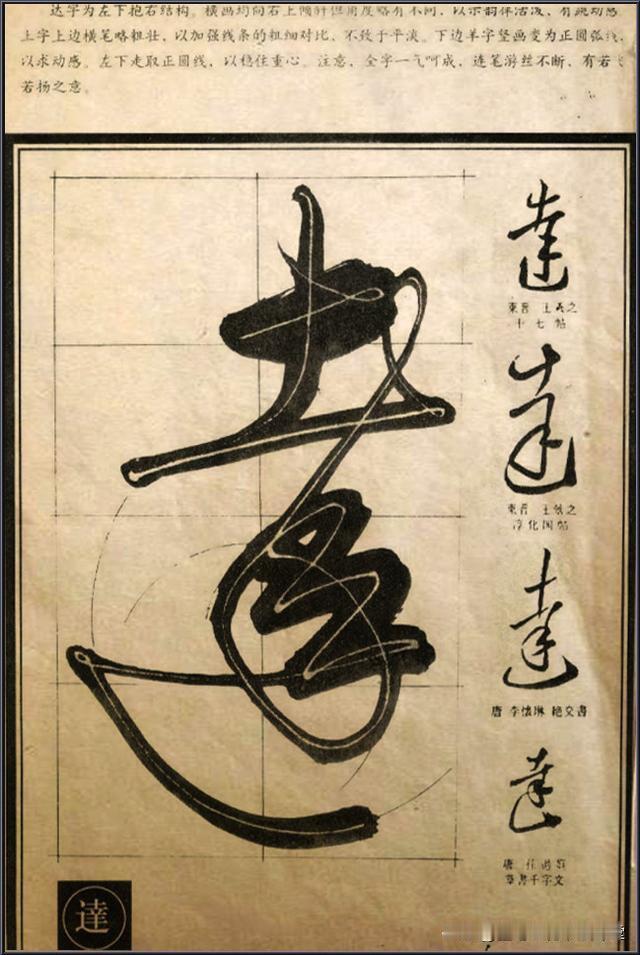 达字为左下抱右结构。横画均向右上倾斜但角度略有不同，以求韵律活泼，有跳动感
土字上边横笔略粗壮，以加强线条的粗细对比，不致于平淡。下边羊字竖画变为正圆弧线，
以求动感。左下走取正圆线，以稳住重心。注意，全字一气呵成，连笔游丝不断，有若
若扬之意。
達
達
東晋 王羲之
十七帖
達
東晋 王献之
淳化阁帖
達
唐 李懷琳 绝交書
達
唐
草書千字文
達